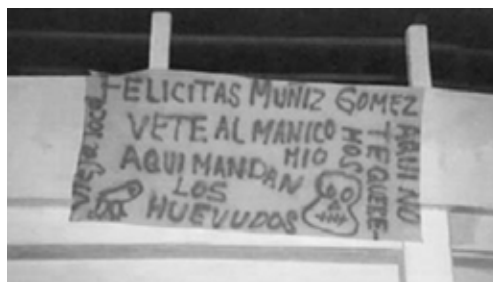 vieja loca
FELICITAS MUÑIZ GOMEZ
VETE AL MANICO
MIO
AQUI MANDAN
LOS
HUEVUDOS
AQUI NO
TE QUERE-
MOS